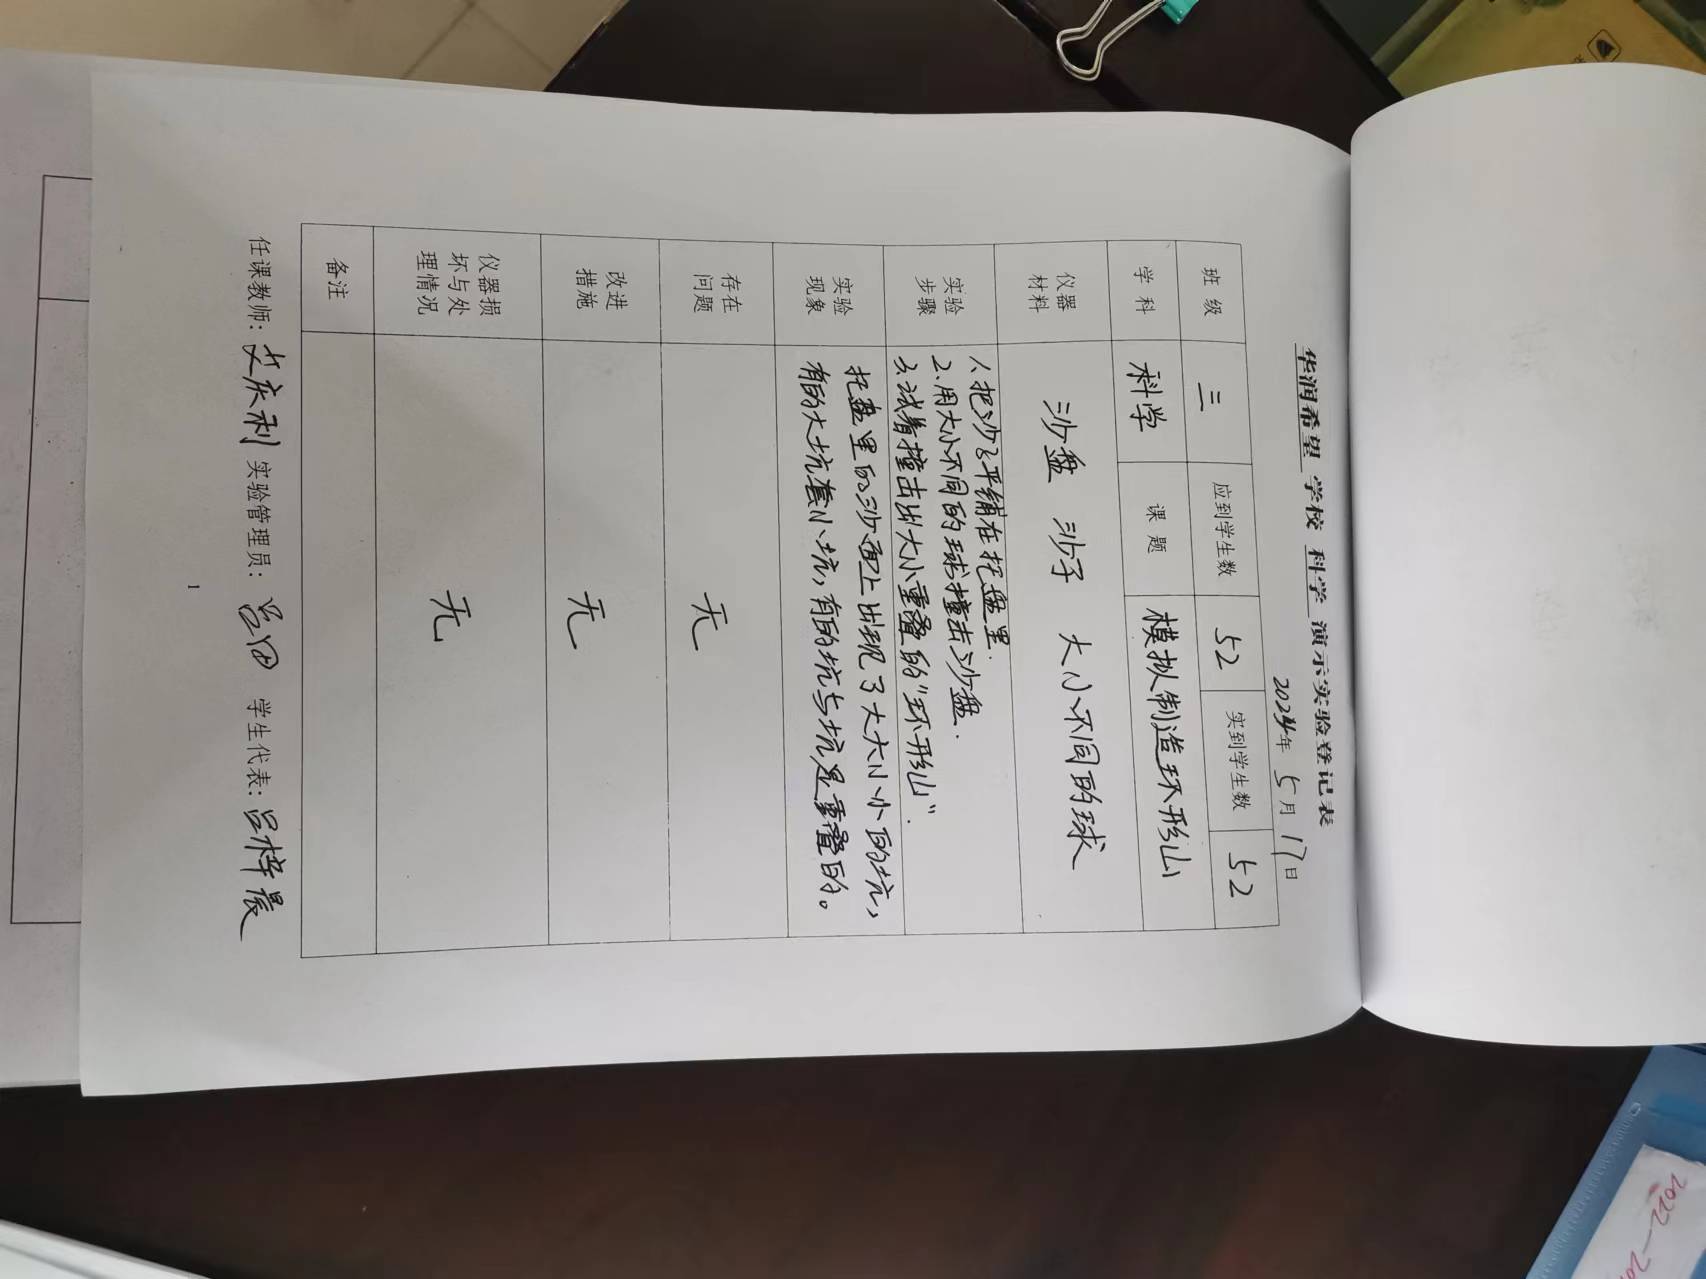 华润希望 学校 科学 演示实验登记表
2024年 5月 17日
班级 三 应到学生数 52 实到学生数 52
学科 科学 课题 模拟制造环形山
仪器材料 沙盘 沙子 大小不同的球
实验步骤
1.把沙子平铺在托盘里.
2.用大小不同的球撞击沙盘.
3.试着撞击出大小重叠的"环形山".
实验现象
托盘里的沙面上出现了大大小小的坑,
有的大坑套小坑,有的坑与坑是重叠的。
存在问题 无
改进措施 无
仪器损坏与处理情况 无
备注
任课教师: 庆利 实验管理员: 吕 学生代表: 吕梓晨
1
2022-20